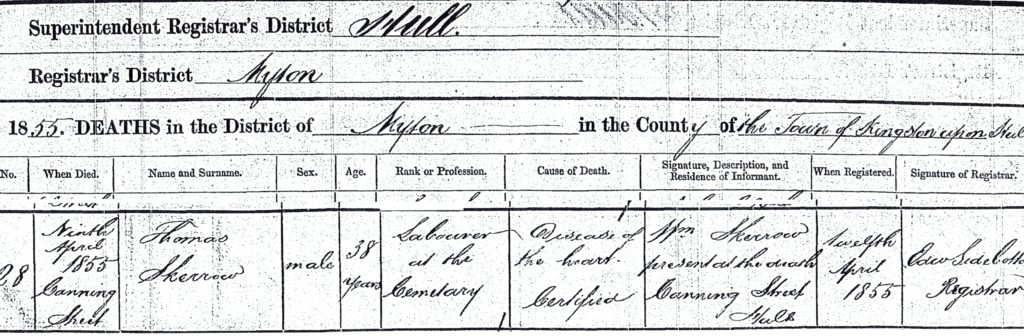 Superintendent Registrar's District Hull.
Registrar's District Myton
1855. DEATHS in the District of Myton in the County of the Town of Kingston upon Hull
No. When Died. Name and Surname. Sex. Age. Rank or Profession. Cause of Death. Signature, Description, and Residence of Informant. When Registered. Signature of Registrar.
28
Ninth
April
1855
Canning
Street
Thomas
Skerrow
male
38
years
Labourer
at the
Cemetary
Disease of
the heart.
Certified
Wm Skerrow
present at the death
Canning Street
Hull
twelfth
April
1855
Edw Sidebotto
Registrar